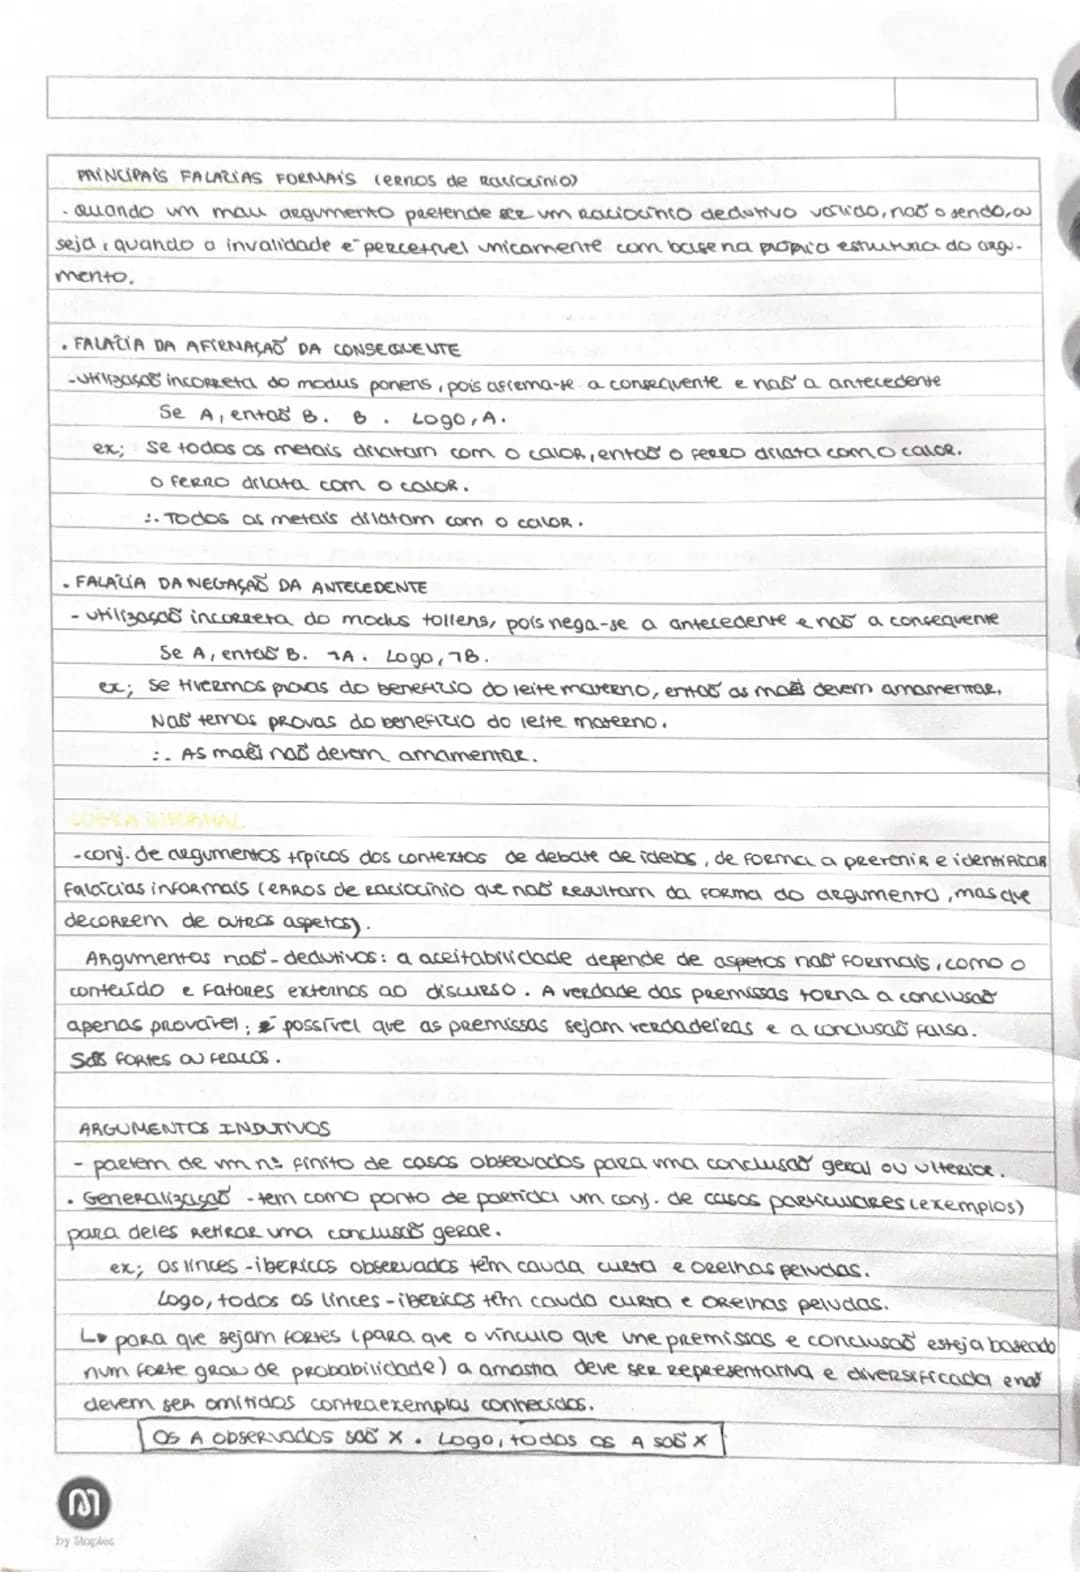 PRINCIPAIS FALÁCIAS FORMAIS (erros de raciocínio)
. Quando um mau argumento pretende ser um raciocínio dedutivo válido, não o sendo, ou
seja, quando a invalidade é percetível unicamente com base na própria estrutura do argu-
mento.
. FALÁCIA DA AFIRMAÇÃO DA CONSEQUENTE
- utilização incorreta do modus ponens, pois afirma-se a consequente e não a antecedente
Se A, então B. B. Logo, A.
ex; Se todos os metais dilatam com o calor, então o ferro dilata com o calor.
O ferro dilata com o calor.
∴ Todos os metais dilatam com o calor.
. FALÁCIA DA NEGAÇÃO DA ANTECEDENTE
- utilização incorreta do modus tollens, pois nega-se a antecedente e não a consequente
Se A, então B. ¬A. Logo, ¬B.
ex; Se tivermos provas do benefízio do leite materno, então as mães devem amamentar.
Não temos provas do benefízio do leite materno.
∴ As mães não devem amamentar.
LÓGICA INFORMAL
- conj. de argumentos típicos dos contextos de debate de ideias, de forma a prevenir e identificar
falácias informais (erros de raciocínio que não resultam da forma do argumento, mas que
decorrem de outros aspetos).
Argumentos não-dedutivos: a aceitabilidade depende de aspetos não formais, como o
conteúdo e fatores externos ao discurso. A verdade das premissas torna a conclusão
apenas provável; é possível que as premissas sejam verdadeiras e a conclusão falsa.
São fortes ou fracos.
ARGUMENTOS INDUTIVOS
- partem de um nº finito de casos observados para uma conclusão geral ou ulterior.
. Generalização - tem como ponto de partida um conj. de casos particulares (exemplos)
para deles retirar uma conclusão geral.
ex; Os linces-ibéricos observados têm cauda curta e orelhas peludas.
Logo, todos os linces-ibéricos têm cauda curta e orelhas peludas.
↳ para que sejam fortes (para que o vínculo que une premissas e conclusão esteja baseado
num forte grau de probabilidade) a amostra deve ser representativa e diversificada e não
devem ser omitidos contraexemplos conhecidos.
Os A observados são X. Logo, todos os A são X
by Staples